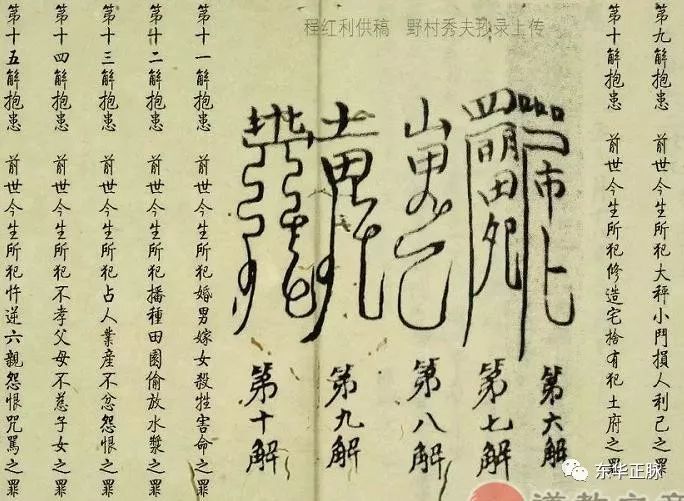 程红利供稿 野村秀夫抄录上传
第九解抱患 前世今生所犯大秤小鬥損人利己之罪
第十解抱患 前世今生所犯修造宅捨有犯土府之罪
第六解
第七解
第八解
第九解
第十解
第十一解抱患 前世今生所犯婚男嫁女殺牲害命之罪
第十二解抱患 前世今生所犯播種田園偷放水漿之罪
第十三解抱患 前世今生所犯占人業產不忿怨恨之罪
第十四解抱患 前世今生所犯不孝父母不慈子女之罪
第十五解抱患 前世今生所犯忤逆六親怨恨咒罵之罪
东华正脉